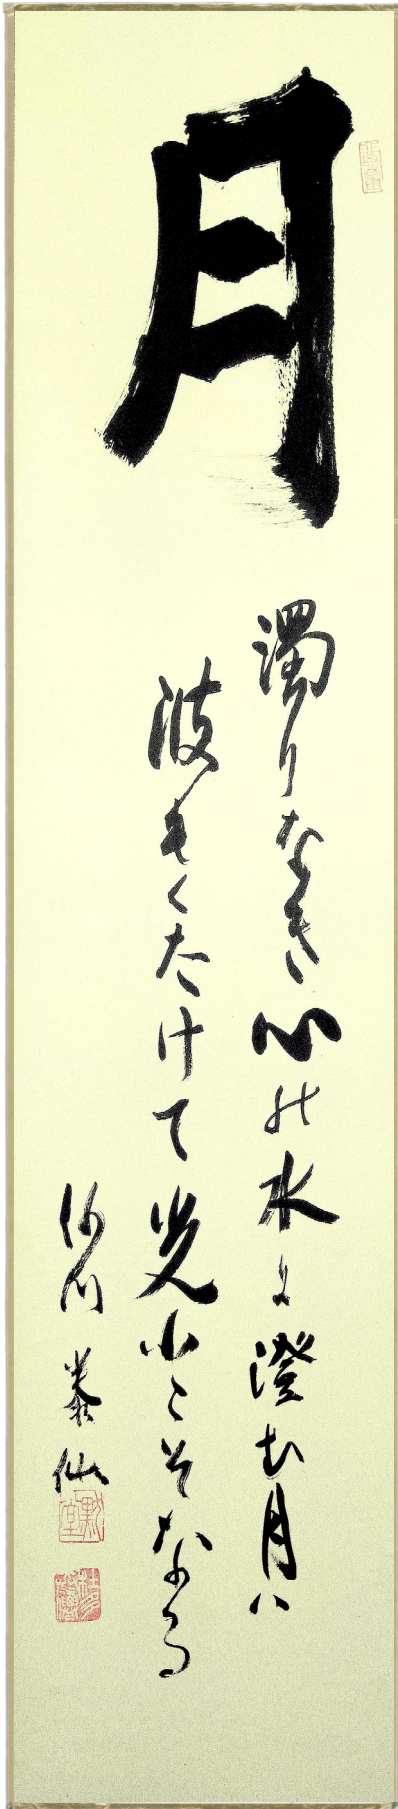 月
濁りなき心の水に澄む月ハ
波もくたけて光こそな る
沙門 泰仙